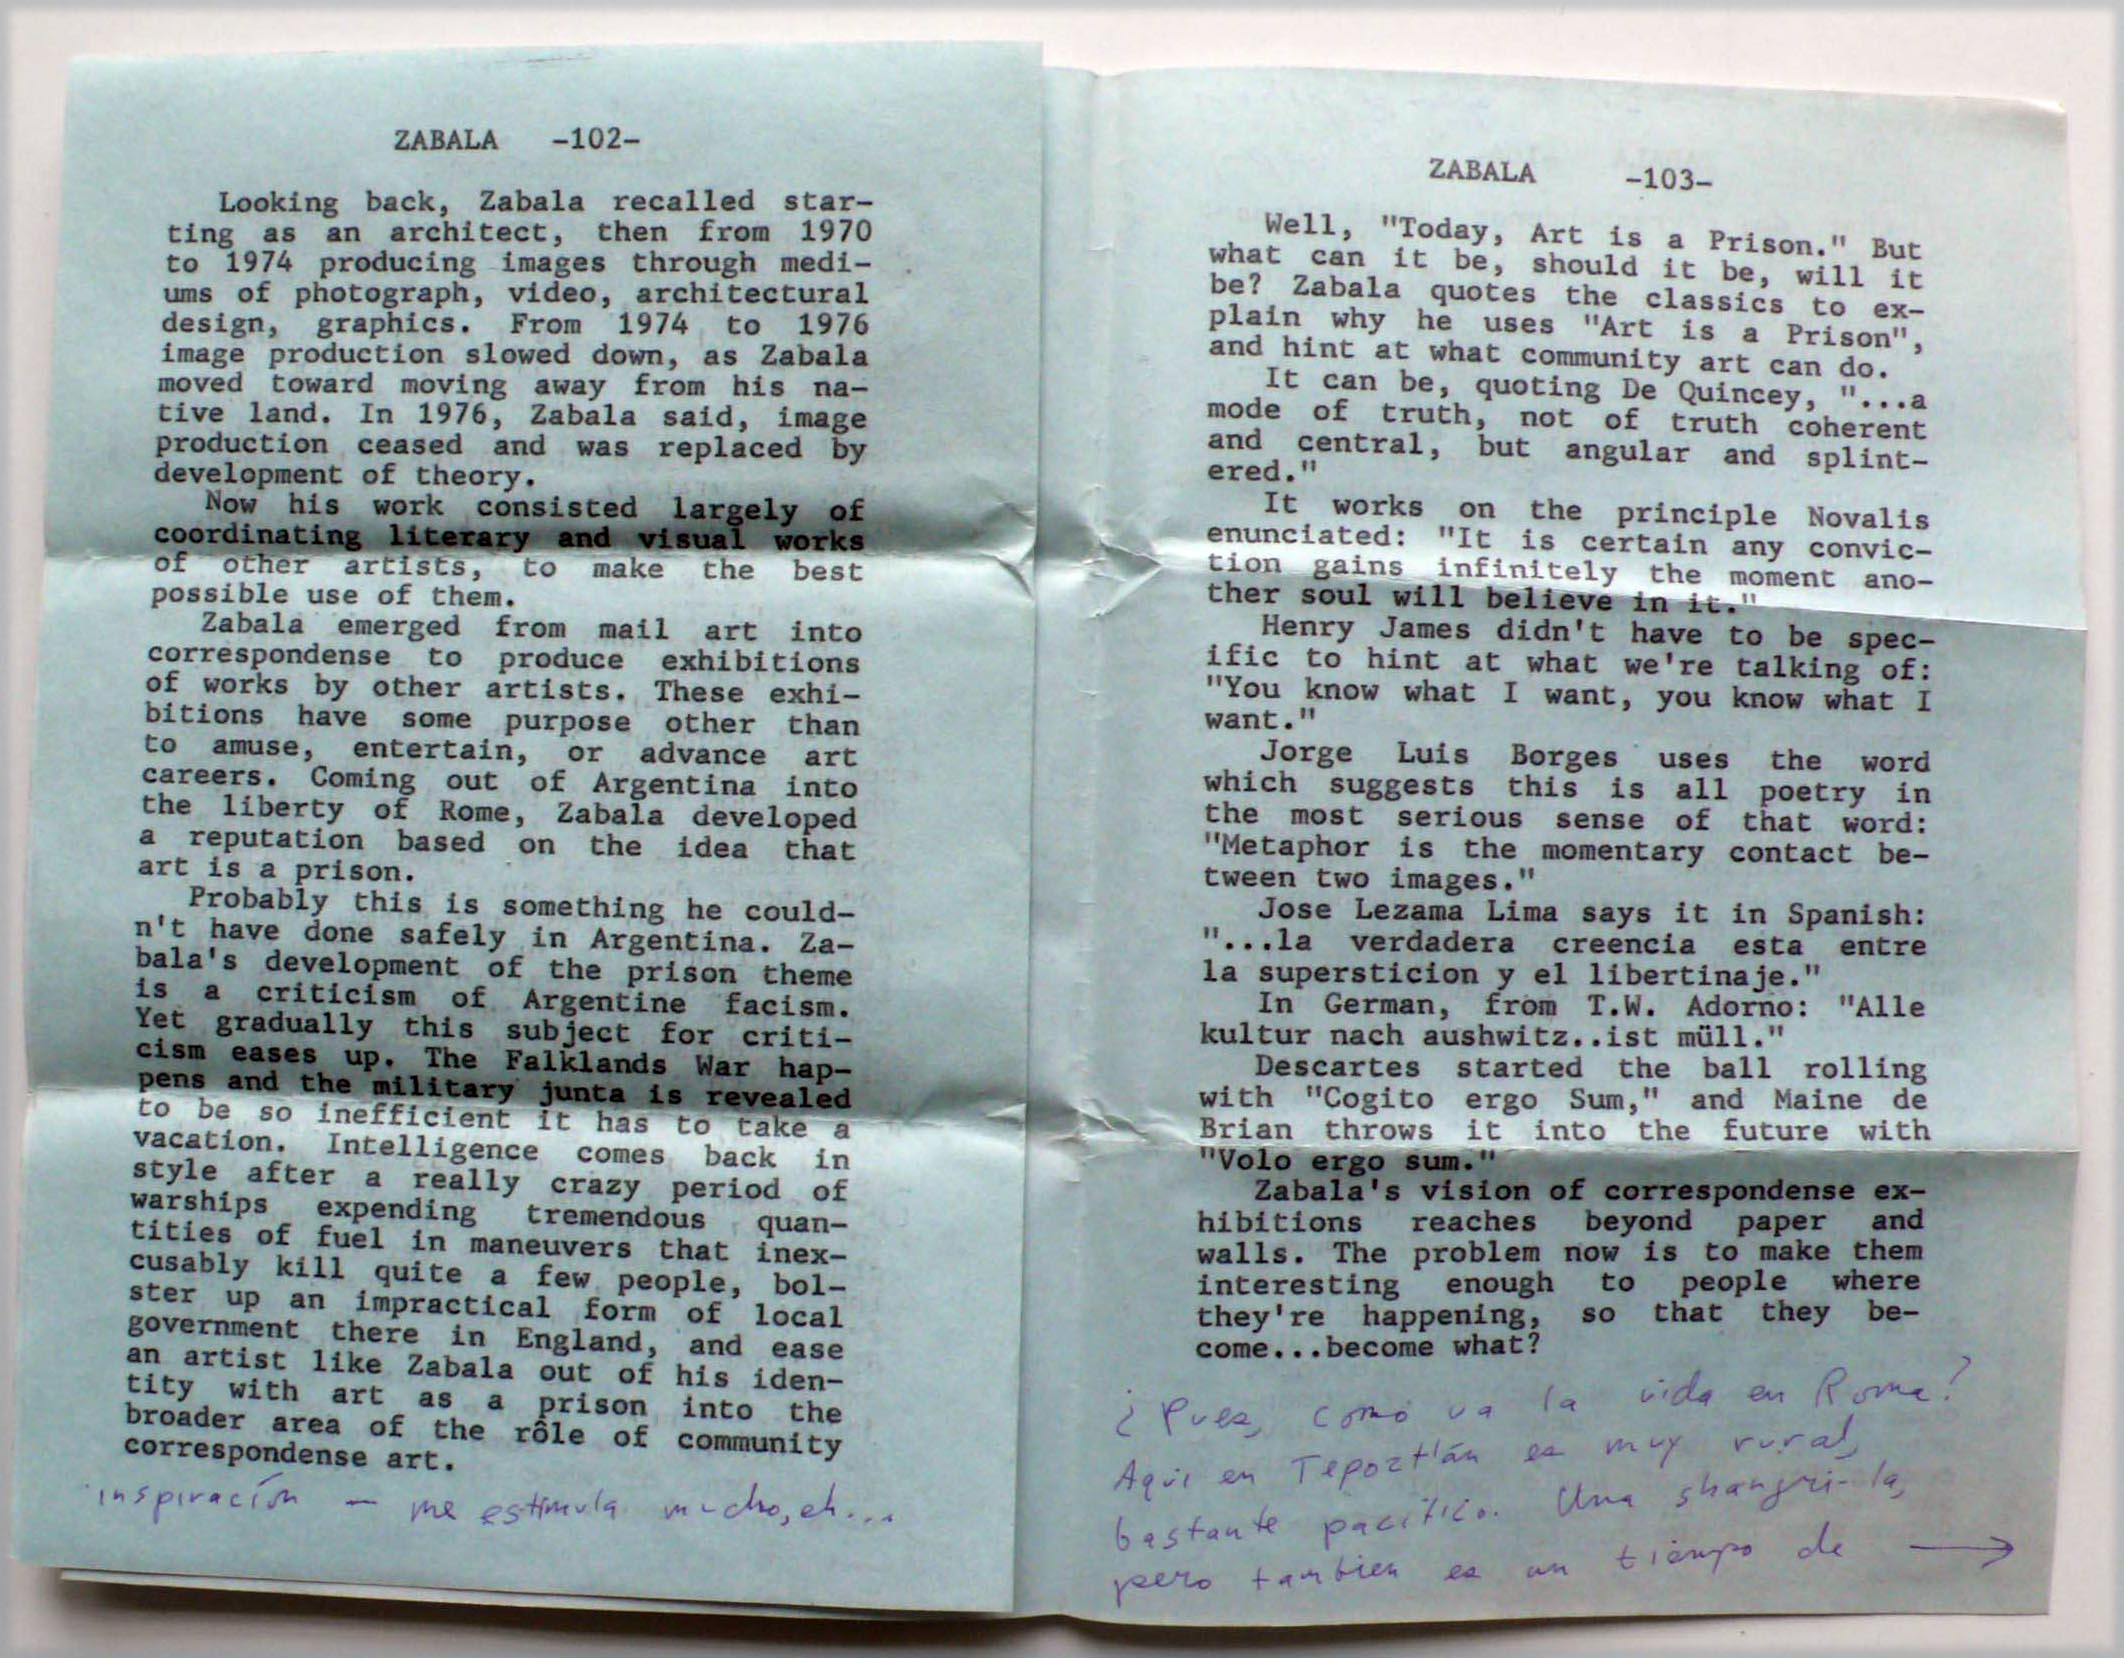 ZABALA -102-
Looking back, Zabala recalled star-
ting as an architect, then from 1970
to 1974 producing images through medi-
ums of photograph, video, architectural
design, graphics. From 1974 to 1976
image production slowed down, as Zabala
moved toward moving away from his na-
tive land. In 1976, Zabala said, image
production ceased and was replaced by
development of theory.
Now his work consisted largely of
coordinating literary and visual works
of other artists, to make the best
possible use of them.
Zabala emerged from mail art into
correspondense to produce exhibitions
of works by other artists. These exhi-
bitions have some purpose other than
to amuse, entertain, or advance art
careers. Coming out of Argentina into
the liberty of Rome, Zabala developed
a reputation based on the idea that
art is a prison.
Probably this is something he could-
n't have done safely in Argentina. Za-
bala's development of the prison theme
is a criticism of Argentine facism.
Yet gradually this subject for criti-
cism eases up. The Falklands War hap-
pens and the military junta is revealed
to be so inefficient it has to take a
vacation. Intelligence comes back in
style after a really crazy period of
warships expending tremendous quan-
tities of fuel in maneuvers that inex-
cusably kill quite a few people, bol-
ster up an impractical form of local
government there in England, and ease
an artist like Zabala out of his iden-
tity with art as a prison into the
broader area of the rôle of community
correspondense art.
inspiración — me estimula mucho, eh...
ZABALA -103-
Well, "Today, Art is a Prison." But
what can it be, should it be, will it
be? Zabala quotes the classics to ex-
plain why he uses "Art is a Prison",
and hint at what community art can do.
It can be, quoting De Quincey, "...a
mode of truth, not of truth coherent
and central, but angular and splint-
ered."
It works on the principle Novalis
enunciated: "It is certain any convic-
tion gains infinitely the moment ano-
ther soul will believe in it."
Henry James didn't have to be spec-
ific to hint at what we're talking of:
"You know what I want, you know what I
want."
Jorge Luis Borges uses the word
which suggests this is all poetry in
the most serious sense of that word:
"Metaphor is the momentary contact be-
tween two images."
Jose Lezama Lima says it in Spanish:
"...la verdadera creencia esta entre
la supersticion y el libertinaje."
In German, from T.W. Adorno: "Alle
kultur nach aushwitz..ist müll."
Descartes started the ball rolling
with "Cogito ergo Sum," and Maine de
Brian throws it into the future with
"Volo ergo sum."
Zabala's vision of correspondense ex-
hibitions reaches beyond paper and
walls. The problem now is to make them
interesting enough to people where
they're happening, so that they be-
come...become what?
¿Pues, como va la vida en Roma?
Aqui en Tepoztlán es muy rural,
bastante pacifico. Una shangri-la,
pero tambien es un tiempo de →